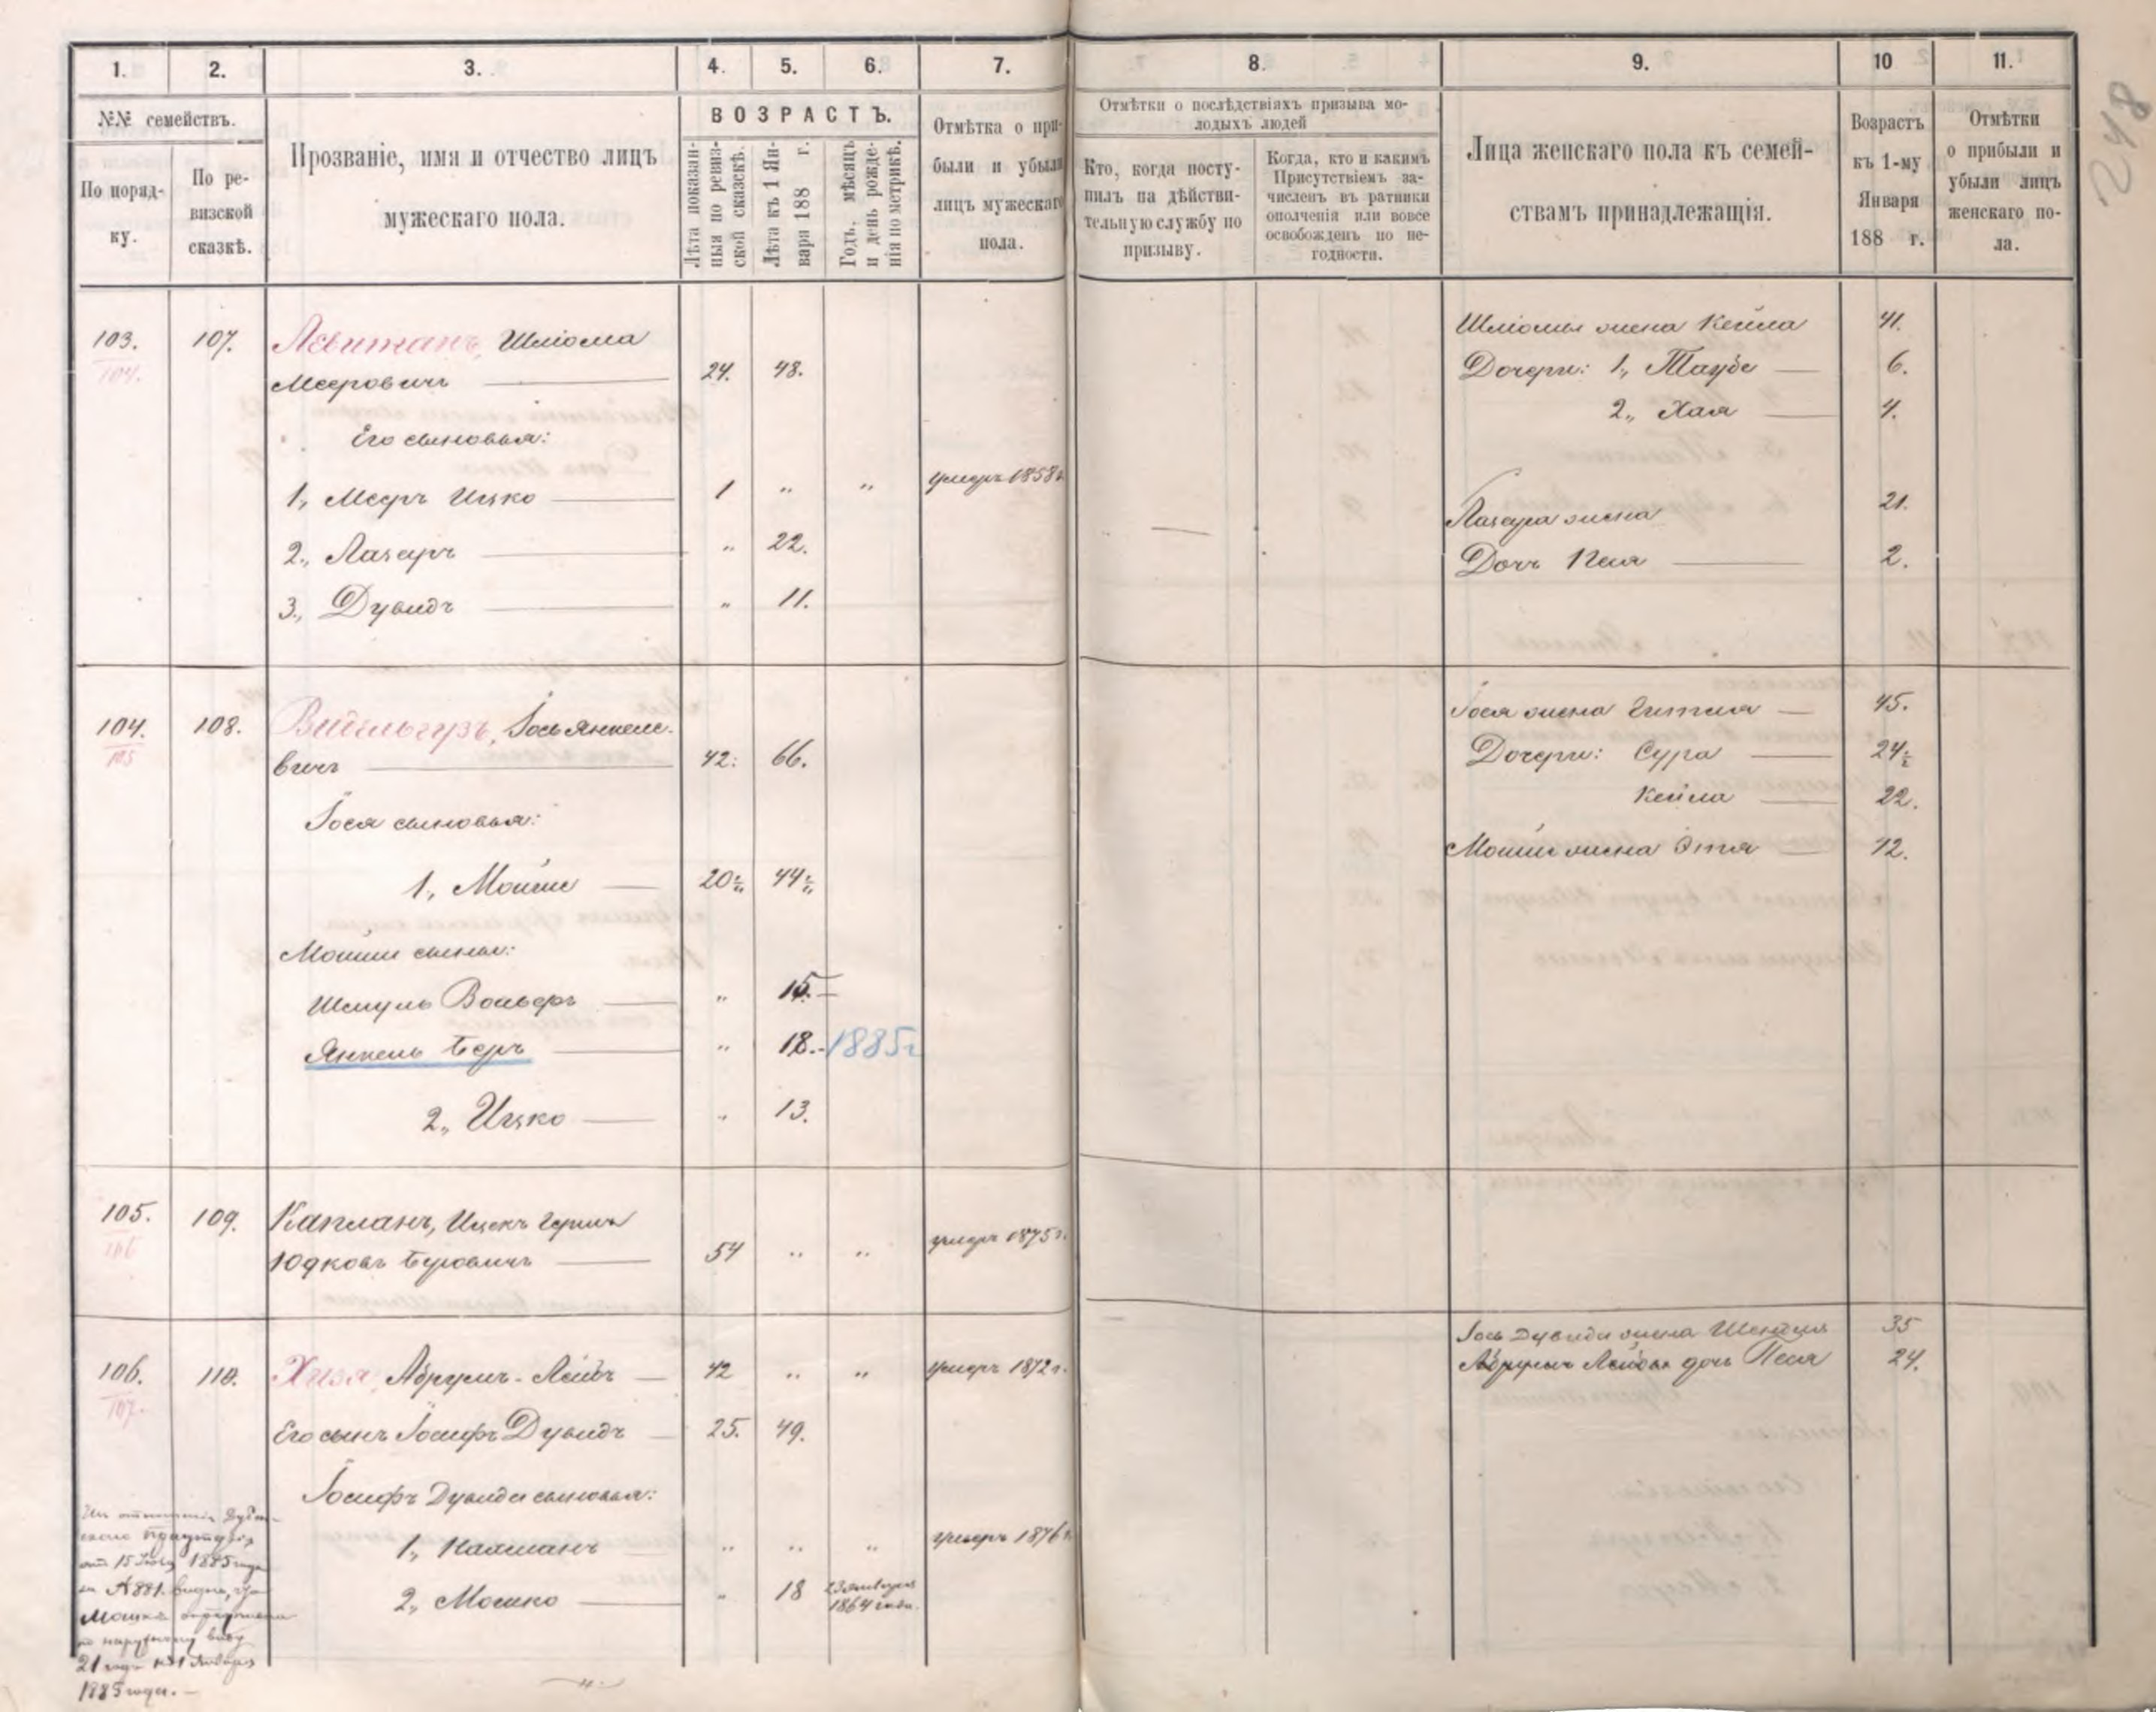 1. 2. 3. 4. 5. 6. 7. 8. 9. 10 11.
248
№№ семействъ.
По порядку.
По ревизской сказкѣ.
Прозваніе, имя и отчество лицъ
мужескаго пола.
ВОЗРАСТЪ.
Лѣта показанныя по ревизской сказскѣ.
Лѣта къ 1 Января 188 г.
Годъ, мѣсяцъ и день рожденія по метрикѣ.
Отмѣтка о прибыли и убыли лицъ мужескаго пола.
Отмѣтки о послѣдствіяхъ призыва молодыхъ людей
Кто, когда поступилъ на дѣйствительную службу по призыву.
Когда, кто и какимъ Присутствіемъ зачисленъ въ ратники ополченія или вовсе освобожденъ по негодности.
Лица женскаго пола къ семействамъ принадлежащія.
Возрастъ къ 1-му Января 188 г.
Отмѣтки о прибыли и убыли лицъ женскаго пола.
103. 107. Левитанъ, Шліома
104.
Мееровичъ 24. 48.
Его сыновья:
1, Мееръ Ицко 1 " " умеръ 1858 г.
2, Лазаръ " 22.
3, Дувидъ " 11.
Шліомы жена Кейла 41.
Дочери: 1, Таубе 6.
2, Хая 4.
Лазара жена 21.
Дочь Песя 2.
104. 108. Іось Янкеле-
105
вичъ 42. 66.
Іося сыновья:
1, Мойши 20½ 44½
Мойши сыны:
Шмуль Вольфъ " 15.
Янкель Беръ " 18. 1885 г
2, Ицко " 13.
Іося жена Гитля 45.
Дочери: Сура 24½
Кейла 22.
Мойши жена Этя 42.
105. 109. Капланъ, Ицекъ Гершъ
106
Юдковъ Беровичъ 54 " " умеръ 1875 г.
106. 110. Хаза, Абрумъ-Лейбъ 42 " " умеръ 1872 г.
107.
Его сынъ Іосифъ Дувидъ 25. 49.
Іосифъ Дувида сыновья:
1, Калманъ " " " умеръ 1876 г.
2, Мошко " 18 23 января
1864 года.
Іось Дувида жена Шейндля 35
Абрума Лейбы дочь Песя 24.
отъ 15 1885 года
за № 881. видно, что
Мошка
по наружному виду
21 годъ къ 1 Января
1885 года.